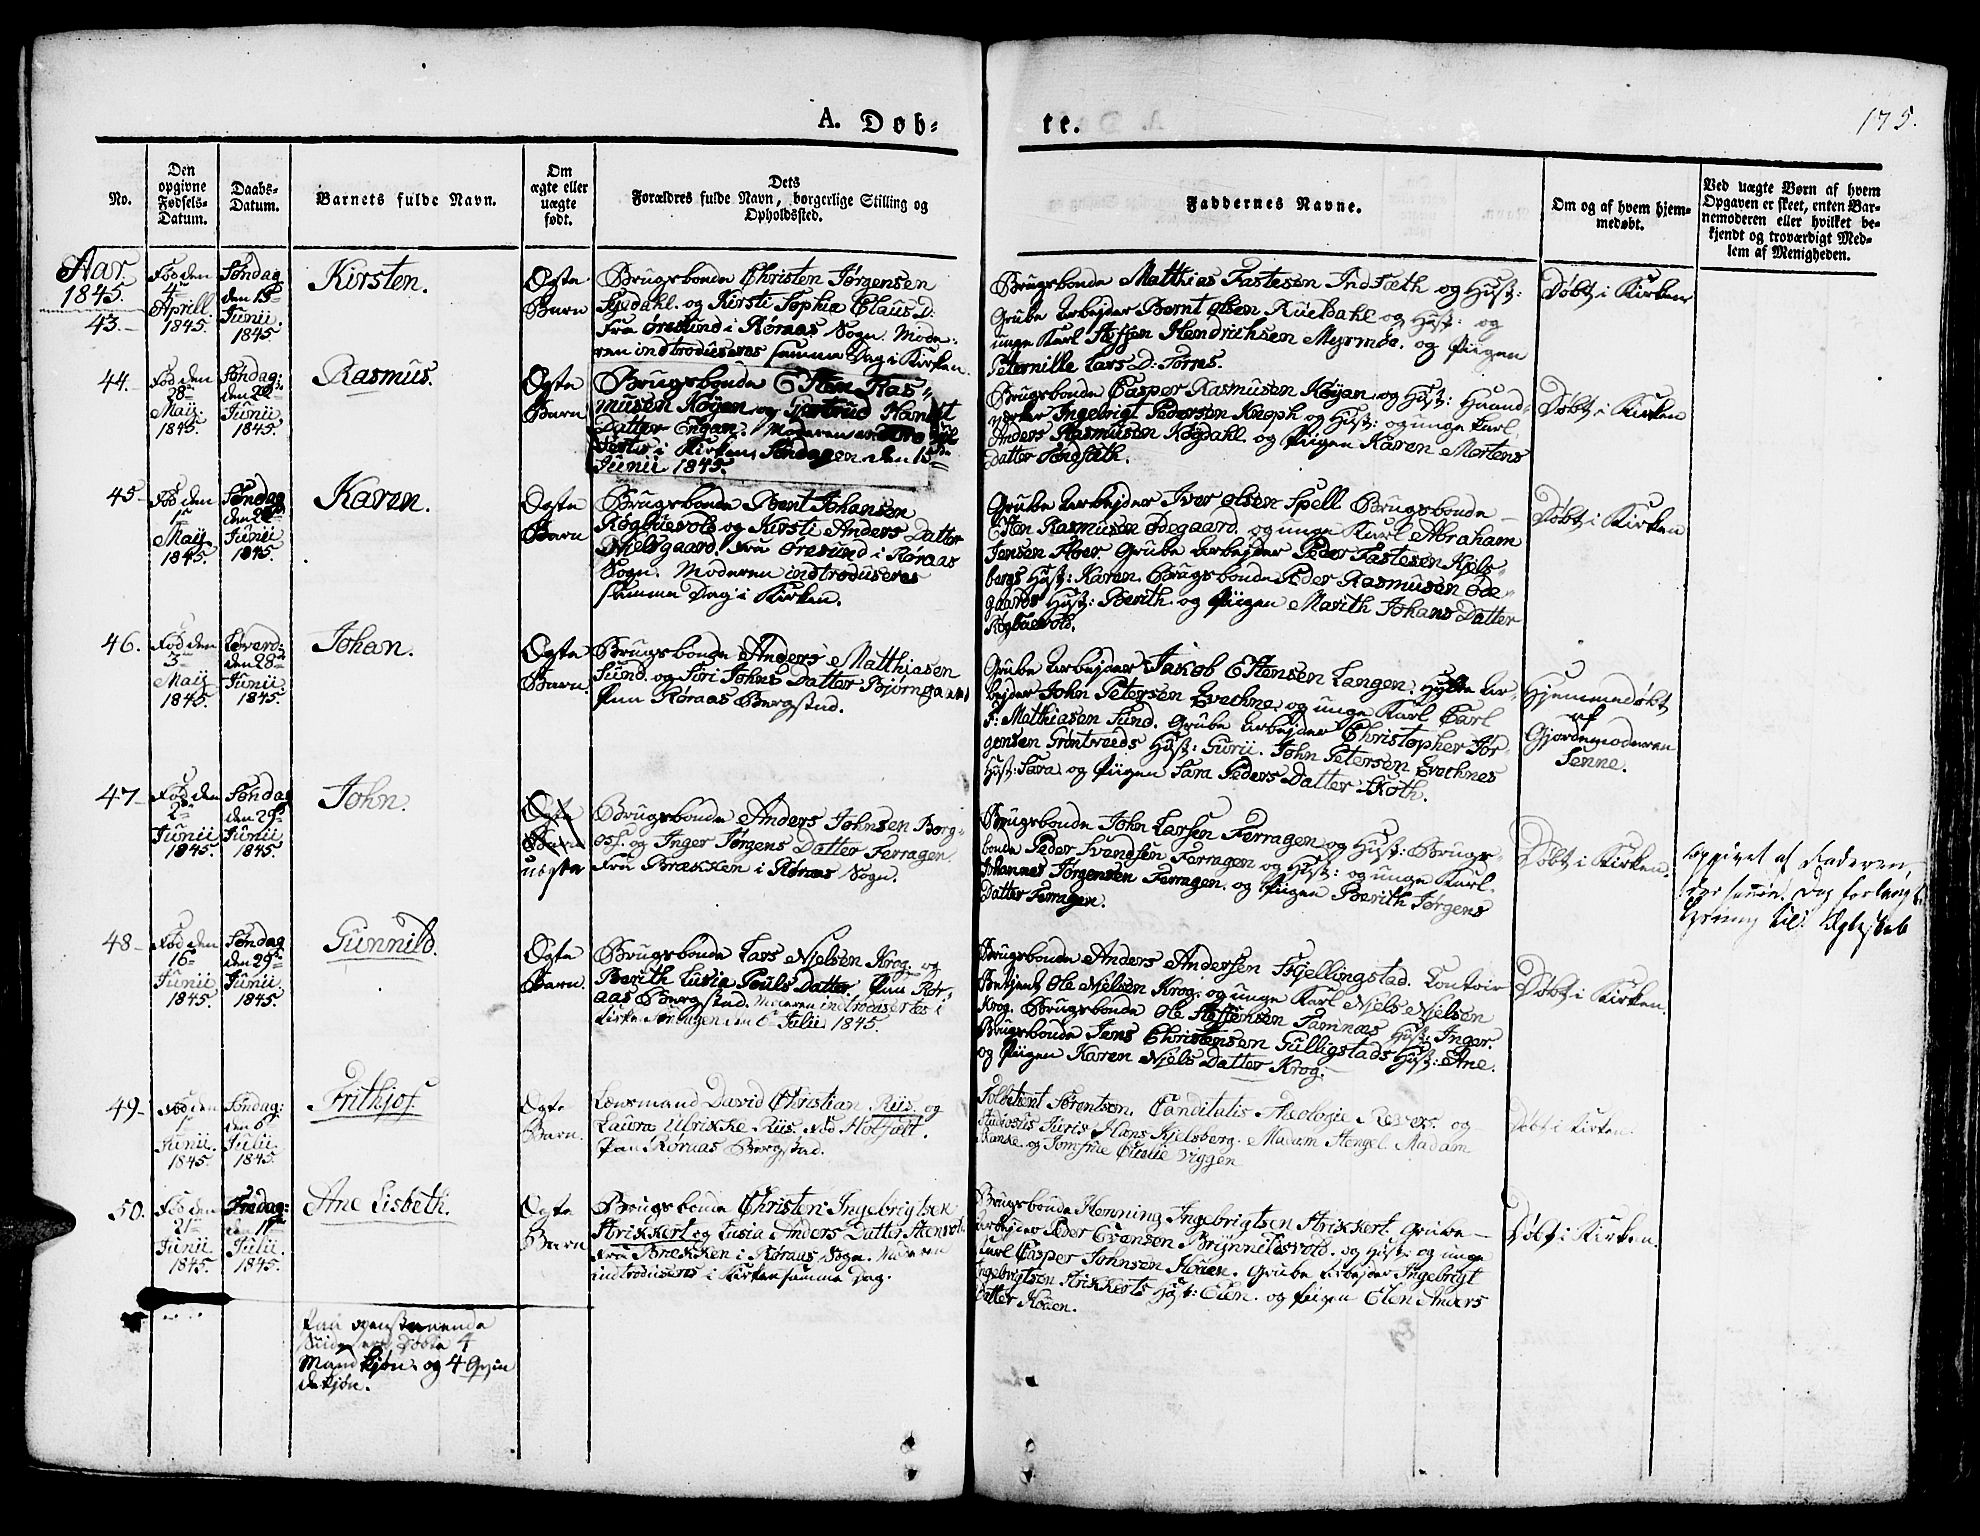 A. Døb-
te.
175.
No.
Den opgivne Fødsels-Datum.
Daabs-Datum.
Barnets fulde Navn.
Om ægte eller uægte født.
Dets Forældres fulde Navn, borgerlige Stilling og Opholdsted.
Faddernes Navne.
Om og af hvem hjem-medøbt.
Ved uægte Børn af hvem
Opgaven er skeet, enten Bar-
nemoderen eller hvilket be-
kjendt og troværdigt Med-
lem af Menigheden.
Aar
1845.
43.
Fød den
4de
Aprill.
1845.
Søndag
den 15de
Junii
1845.
Kirsten.
Ægte
Barn
Brugsbonde Christen Jørgensen
og Kirsti Sophia Claus D:
fra Øresund i Røraas Sogn. Mode-
ren indtroduseres samme Dag i Kirken.
Brugsbonde Matthias Fastesen Indsæth og Hust:
Grube Arbejder Bernt Olsen Rueldahl og Hust: og
unge Karl Steffen Hendrichsen Myrmoa. og Piigen
Peternille Lars D: Torres.
Døbt i Kirken
44.
Fød den
28de
Maij.
1845.
Søndag:
den 22de
Junii
1845.
Rasmus.
Ægte
Barn
Brugsbonde Esten Ras-
musen Køyan og Gertrud
Datter Engan. Moderen
i Kirken, Søndagen den 15de
Junii 1845.
Brugsbonde Casper Rasmusen Køyan og Hust: Haand-
verker Ingebrigt Pedersen Knoph og Hust: og unge Karl
Anders Rasmusen Køgdahl. og Piigen Karen Mortens
Datter Søndsæth.
Døbt i Kirken
45
Fød den
1ste
Maij
1845.
Søndag
den 22de
Junii
1845.
Karen.
Ægte
Barn
Brugsbonde Bent Johansen
Røgbuevold og Kirsti Anders Datter
Nielsgaard. fra Øresund i Røraas
Sogn. Moderen indtroduseres
samme Dag i Kirken.
Grube Arbejder Iver Olsen Spell Brugsbonde
Esten Rasmusen Ødegaard. og unge Karl Abraham
Jensen Floer Grube Arbejder Peder Fastesen Kjels-
bergs Hust: Karen. Brugsbonde Peder Rasmusen Øde-
gaards Hust: Berith. og Piigen Marith Johans Datter
Røgbuevold.
Døbt i Kirken
46.
Fød den
3de
Maij
1845.
Løverd:
den 28de
Junii
1845.
Johan.
Ægte
Barn.
Brugsbonde Anders Matthiasen
Sund. og Siri Johns Datter Bjørngaard
Paa Røraas Bergstad.
Grube Arbejder Jakob Estensen Langen. Hytte Ar-
bejder John Petersen Evothne. og unge Karl Carl
F: Matthiasen Sund. Grube Arbejder Christopher Jør
gensen Grøntvedds Hust: Gurii. John Petersen Evothnes
Hust: Sara. og Piigen Sara Peders Datter Skoth.
Hjemmedøbt
af
Gjordemoderen
Senne.
47
Fød den
2de
Junii
1845.
Søndag
den 29de
Junii
1845.
John.
Ægte
Barn
uegte
Brugsbonde Anders Johnsen Borg-
os. og Inger Jørgens Datter Ferragen.
fra Brækken i Røraas Sogn.
Brugsbonde John Larsen Ferragen og Hust: Brugs-
bonde Peder Svendsen Ferragen og Hust: og unge Karl
Johannes Jørgensen Ferragen. og Piigen Berith Jørgens
Datter Ferragen.
Døbt i Kirken.
Opgivet af Faderen,
der samme Dag forlangte
Lysning til Ægteskab
48
Fød den
16de
Junii
1845.
Søndag
den 29de
Junii
1845.
Gunnild.
Ægte
Barn.
Brugsbonde Lars Nielsen Krog. og
Berith Lusia Pouls Datter Paa Rør
aas Bergstad. Moderen introdusertes i
Kirken Søndagen den 6te Julii 1845.
Brugsbonde Anders Andersen Fjellingstad. Contoir
Betjent Ole Nielsen Krog. og unge Karl Niels Nielsen
Krog. Brugsbonde Ole Steffensen Tamnæs Hust: Inger.
Brugsbonde Jens Christensen Gulligstads Hust: Ane.
og Piigen Karen Niels Datter Krog.
Døbt i Kirken.
49
Fød den
1ste
Junii.
1845.
Søndag:
den 6te
Julii
1845.
Frithjof.
Ægte
Barn.
Lensmand David Christian Riis. og
Laura Ulrikke Riis. Fød Holfølt.
Paa Røraas Bergstad.
Sørentsen. Canditatis Theologie og
Studiosus Juris Hans Kjelsberg. Madam Stengel. Madam
og Jomfrue Cicelie Viggen
Døbt i Kirken.
50.
Fød den
21de
Junii
1845.
Fredag:
den 11te
Julii
1845.
Ane Lisbeth.
Ægte
Barn
Brugsbonde Christen Ingebrigtsen
Strikkert og Lusia Anders Datter Stenvold
fra Brækken i Røraas Sogn. Moderen
introduseres i Kirken samme Dag.
Brugsbonde Henning Ingebrigtsen Strikkert. Grube
Arbejder Peder Evensen Brynnildsvold. og Hust: og unge
Karl Casper Johnsen Køien. Grube Arbejder Ingebrigt
Ingebrigtsen Strikkerts Hust: Elen. og Piigen Elen Anders
Datter Køien.
Døbt i Kirken.
Paa ovenstaaende
Siide ere Døbte 4
Mandkjøn. og 4 Qvin
dekjøn.